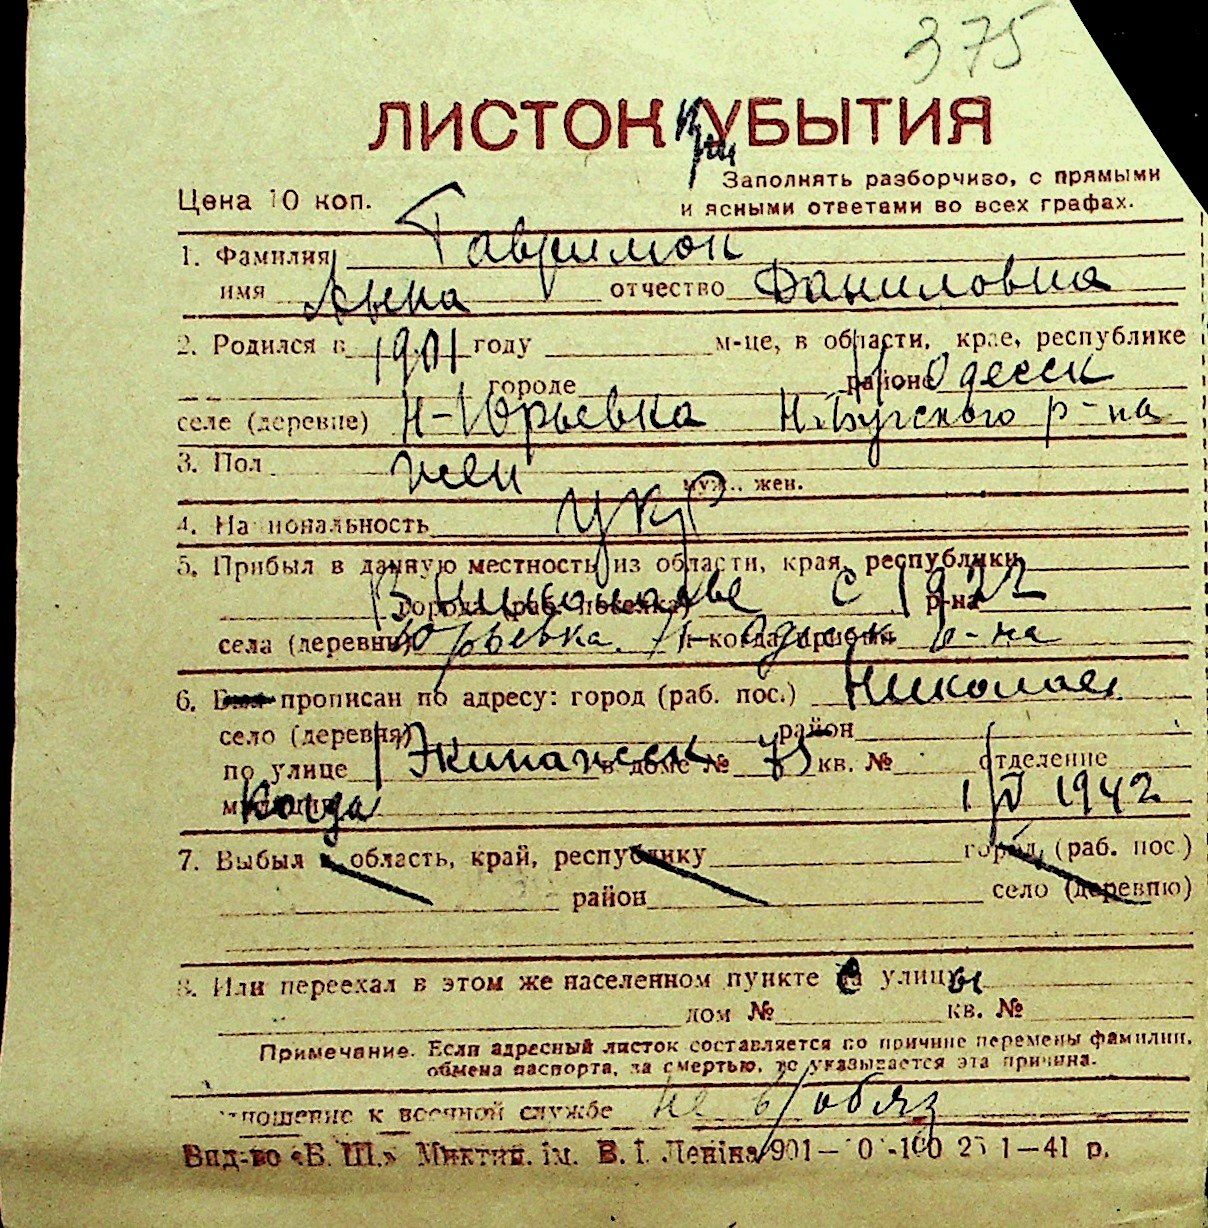 375
ЛИСТОК при УБЫТИЯ
Заполнять разборчиво, с прямыми
Цена 10 коп. и ясными ответами во всех графах.
1. Фамилия Гавримон
имя Анна отчество Даниловна
2. Родился в 1901 году м-це, в области, крае, республике
городе районе Одесск
селе (деревне) Н-Юрьевка Н.Бугского р-на
3. Пол жен муж., жен.
4. Национальность укр
5. Прибыл в данную местность из области, края, республики
города (раб. поселка) В Николаеве с 1922 р-на
села (деревни) Юрьевка когда прибыл Одесск р-на
6. Был прописан по адресу: город (раб. пос.) Николаев
село (деревня) район
по улице Экипажск в доме № 75 кв. № отделение
милиции Когда 1/V 1942
7. Выбыл в область, край, республику город, (раб. пос.)
район село (деревню)
8. Или переехал в этом же населенном пункте с улицы
дом № кв. №
Примечание. Если адресный листок составляется по причине перемены фамилии,
обмена паспорта, за смертью, то указывается эта причина.
Отношение к военной службе не в/обяз
Вид-во «Б. Ш.» Миктип. ім. В. І. Леніна 901— 1—41 р.